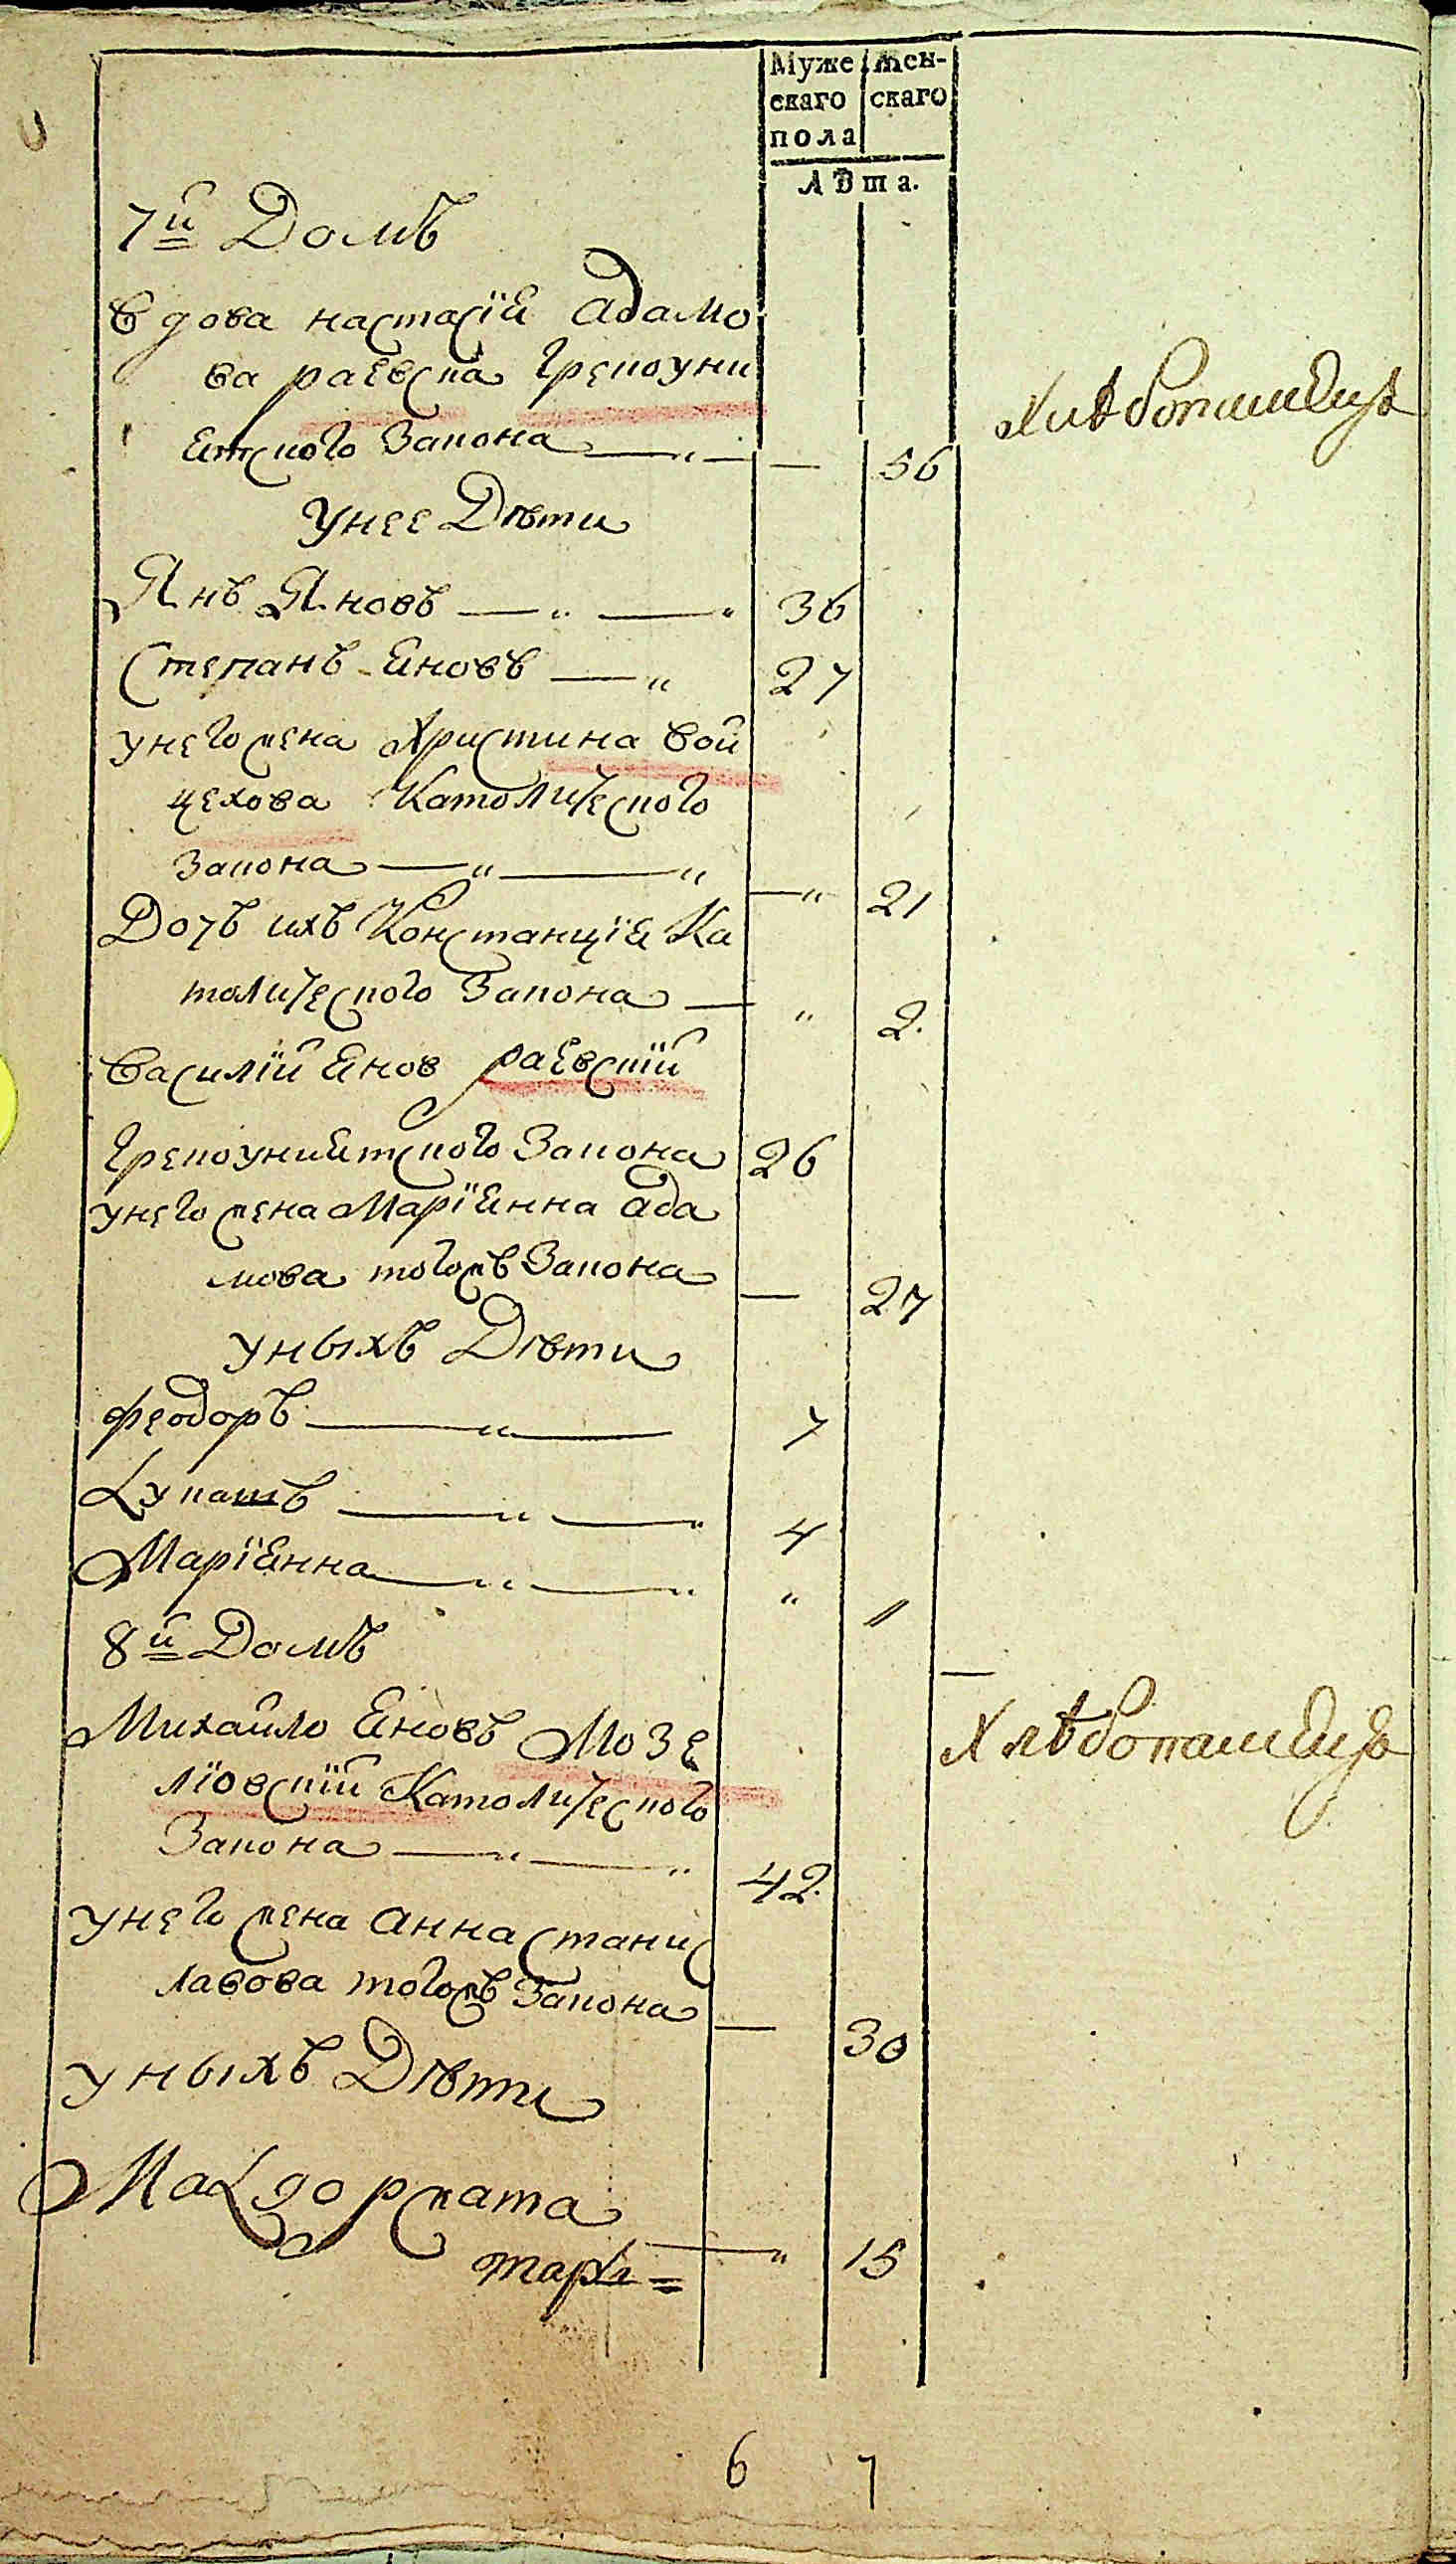 Муже
скаго
пола
Жен-
скаго
Лѣта.
7й Домъ
Вдова настасїя адамо
ва раевска грекоуни
ятского Закона — 56
Хлѣбопашецъ
унее Дѣти
Янъ Яновъ — 36
Степанъ Яновъ — 27
унего жена Христина вой
цехова Католического
Закона — 21
Дочъ ихъ Констанцїя Ка
толического Закона — 2.
Василїй Янов раевскїй
грекоуниятского Закона 26
унего жена Марїянна ада
мова тогожъ Закона — 27
уныхъ Дѣти
Феодоръ — 7
Лукашъ — 4
Марїянна — 1
8й Домъ
Михайло Яновъ Мозе
Хлѣбопашецъ
лїовскїй Католического
Закона — 42.
унего жена анна станис
лавова тогожъ Закона — 30
уныхъ Дѣти
Малгоржата — 15
6 7